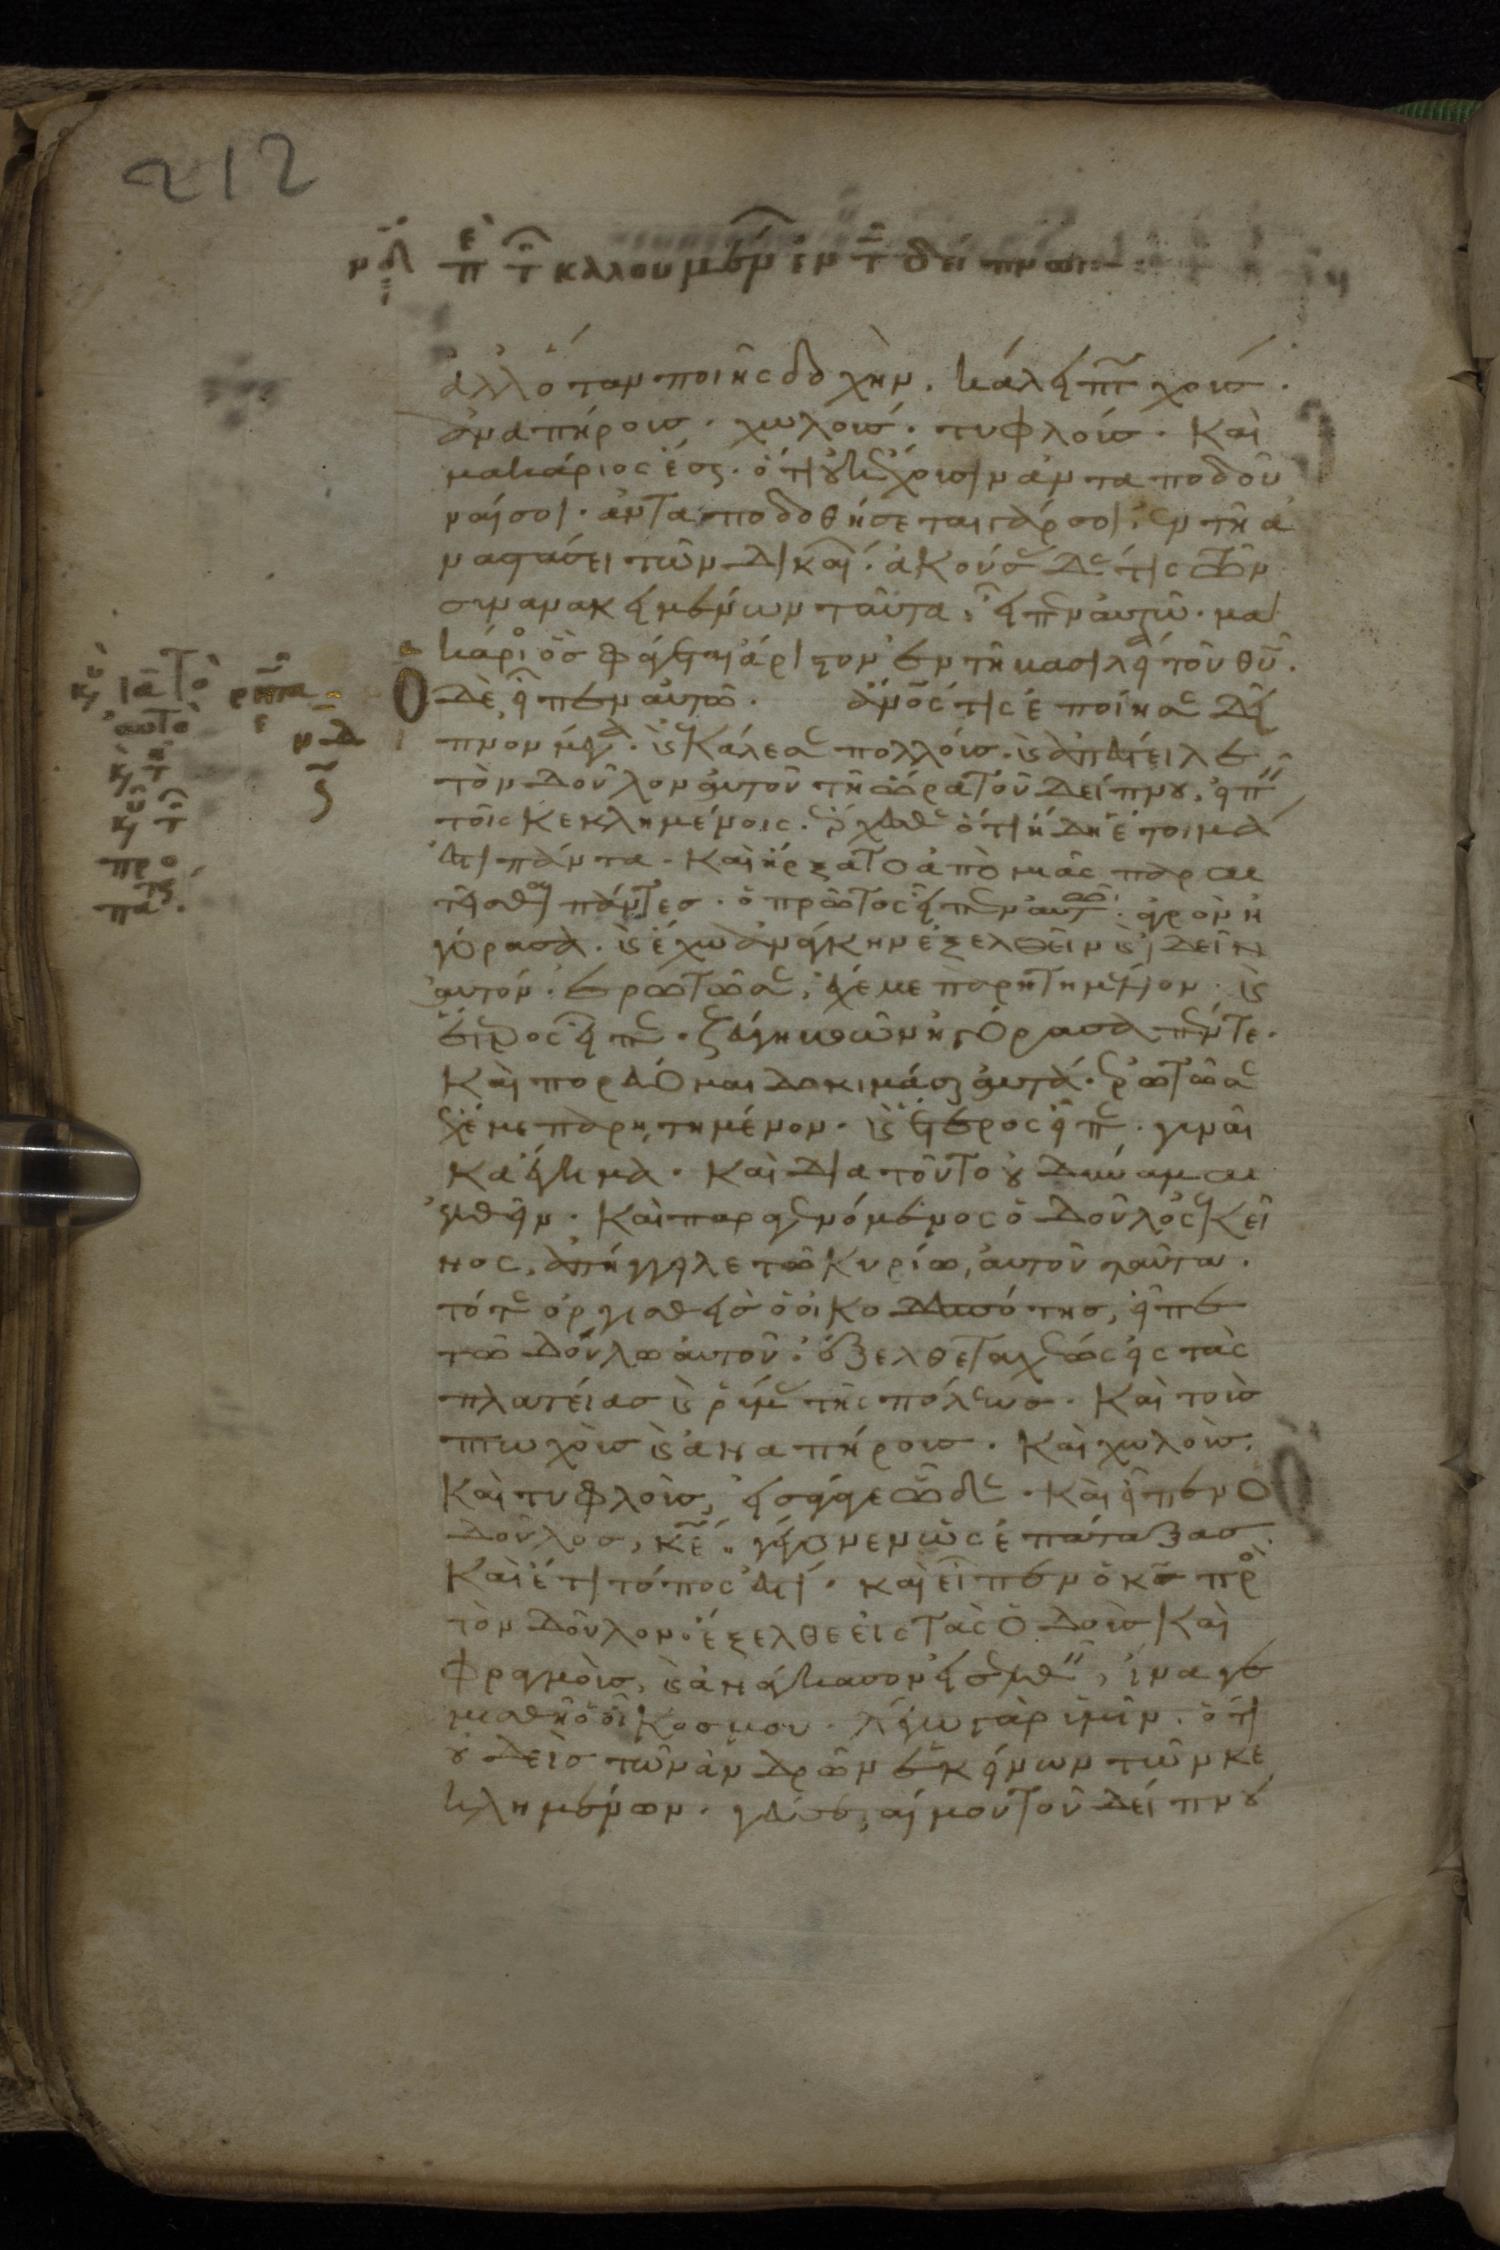 212
περὶ τῶν καλουμένων ἐν τῷ δείπνῳ
ἀλλ' ὅταν ποιῇς δοχὴν, κάλει πτωχούς.
ἀναπήρους. χωλούς. τυφλούς. καὶ
μακάριος ἔσῃ. ὅτι οὐκ ἔχουσιν ἀνταποδοῦ
ναί σοι. ἀνταποδοθήσεται γάρ σοι ἐν τῇ ἀ
ναστάσει τῶν δικαίων. ἀκούσας δέ τις τῶν
συνανακειμένων ταῦτα, εἶπεν αὐτῷ. μα
κάριος ὃς φάγεται ἄριστον ἐν τῇ βασιλεία τοῦ θυ.
Ὁ δὲ εἶπεν αὐτῷ. ἄνος τις ἐποίησε δεῖ
πνον μέγα. καὶ ἐκάλεσε πολλούς. καὶ ἀπέστειλε
τὸν δοῦλον αὐτοῦ τῇ ὥρα τοῦ δείπνου, εἰπεῖν
τοῖς κεκλημένοις. ἔρχεσθε ὅτι ἤδη ἕτοιμά
ἐστι πάντα. καὶ ἤρξατο ἀπὸ μιᾶς παραι
τεῖσθαι πάντες. ὁ πρῶτος εἶπεν αὐτῷ. ἀγρὸν ἠ
γόρασα. καὶ ἔχω ἀνάγκην ἐξελθεῖν καὶ ἰδεῖν
αὐτόν. ἐρωτῶ σε, ἔχε με παρητημένον. καὶ
ἕτερος εἶπε. ζεύγη βοῶν ἠγόρασα πέντε.
καὶ πορεύομαι δοκιμάσαι αὐτά. ἐρωτῶ σε
ἔχε με παρητημένον. καὶ ἕτερος εἶπε. γυναῖ
κα ἔγημα. καὶ διατοῦτο οὐ δύναμαι
ἐλθεῖν. καὶ παραγενόμενος ὁ δοῦλος ἐκεῖ
νος, ἀπήγγειλε τῷ κυρίῳ, αὐτοῦ ταῦτα.
τότε ὀργισθεὶς ὁ οἰκοδεσπότης, εἶπε
τῷ δούλῳ αὐτοῦ. ἔξελθε ταχέως εἰς τὰς
πλατείας καὶ ῥύμας τῆς πόλεως. καὶ τοὺς
πτωχοὺς καὶ ἀναπήρους. καὶ χωλοὺς.
καὶ τυφλοὺς, εἰσάγαγε ὧδε. καὶ εἶπεν ὁ
δοῦλος, κε. γέγονεν ὡς ἐπέταξας.
καὶ ἔτι τόπος ἐστί. καὶ εἶπεν ὁ κς πρὸς
τὸν δοῦλον. ἔξελθε εἰς τὰς ὁδοὺς καὶ
φραγμοὺς, καὶ ἀνάγκασον εἰσελθεῖν, ἵνα γε
μισθῇ ὁ οἶκος μου. λέγω γὰρ ὑμῖν. ὅτι
οὐδεὶς τῶν ἀνδρῶν ἐκείνων τῶν κε
κλημένων. γεύσεταί μου τοῦ δείπνου